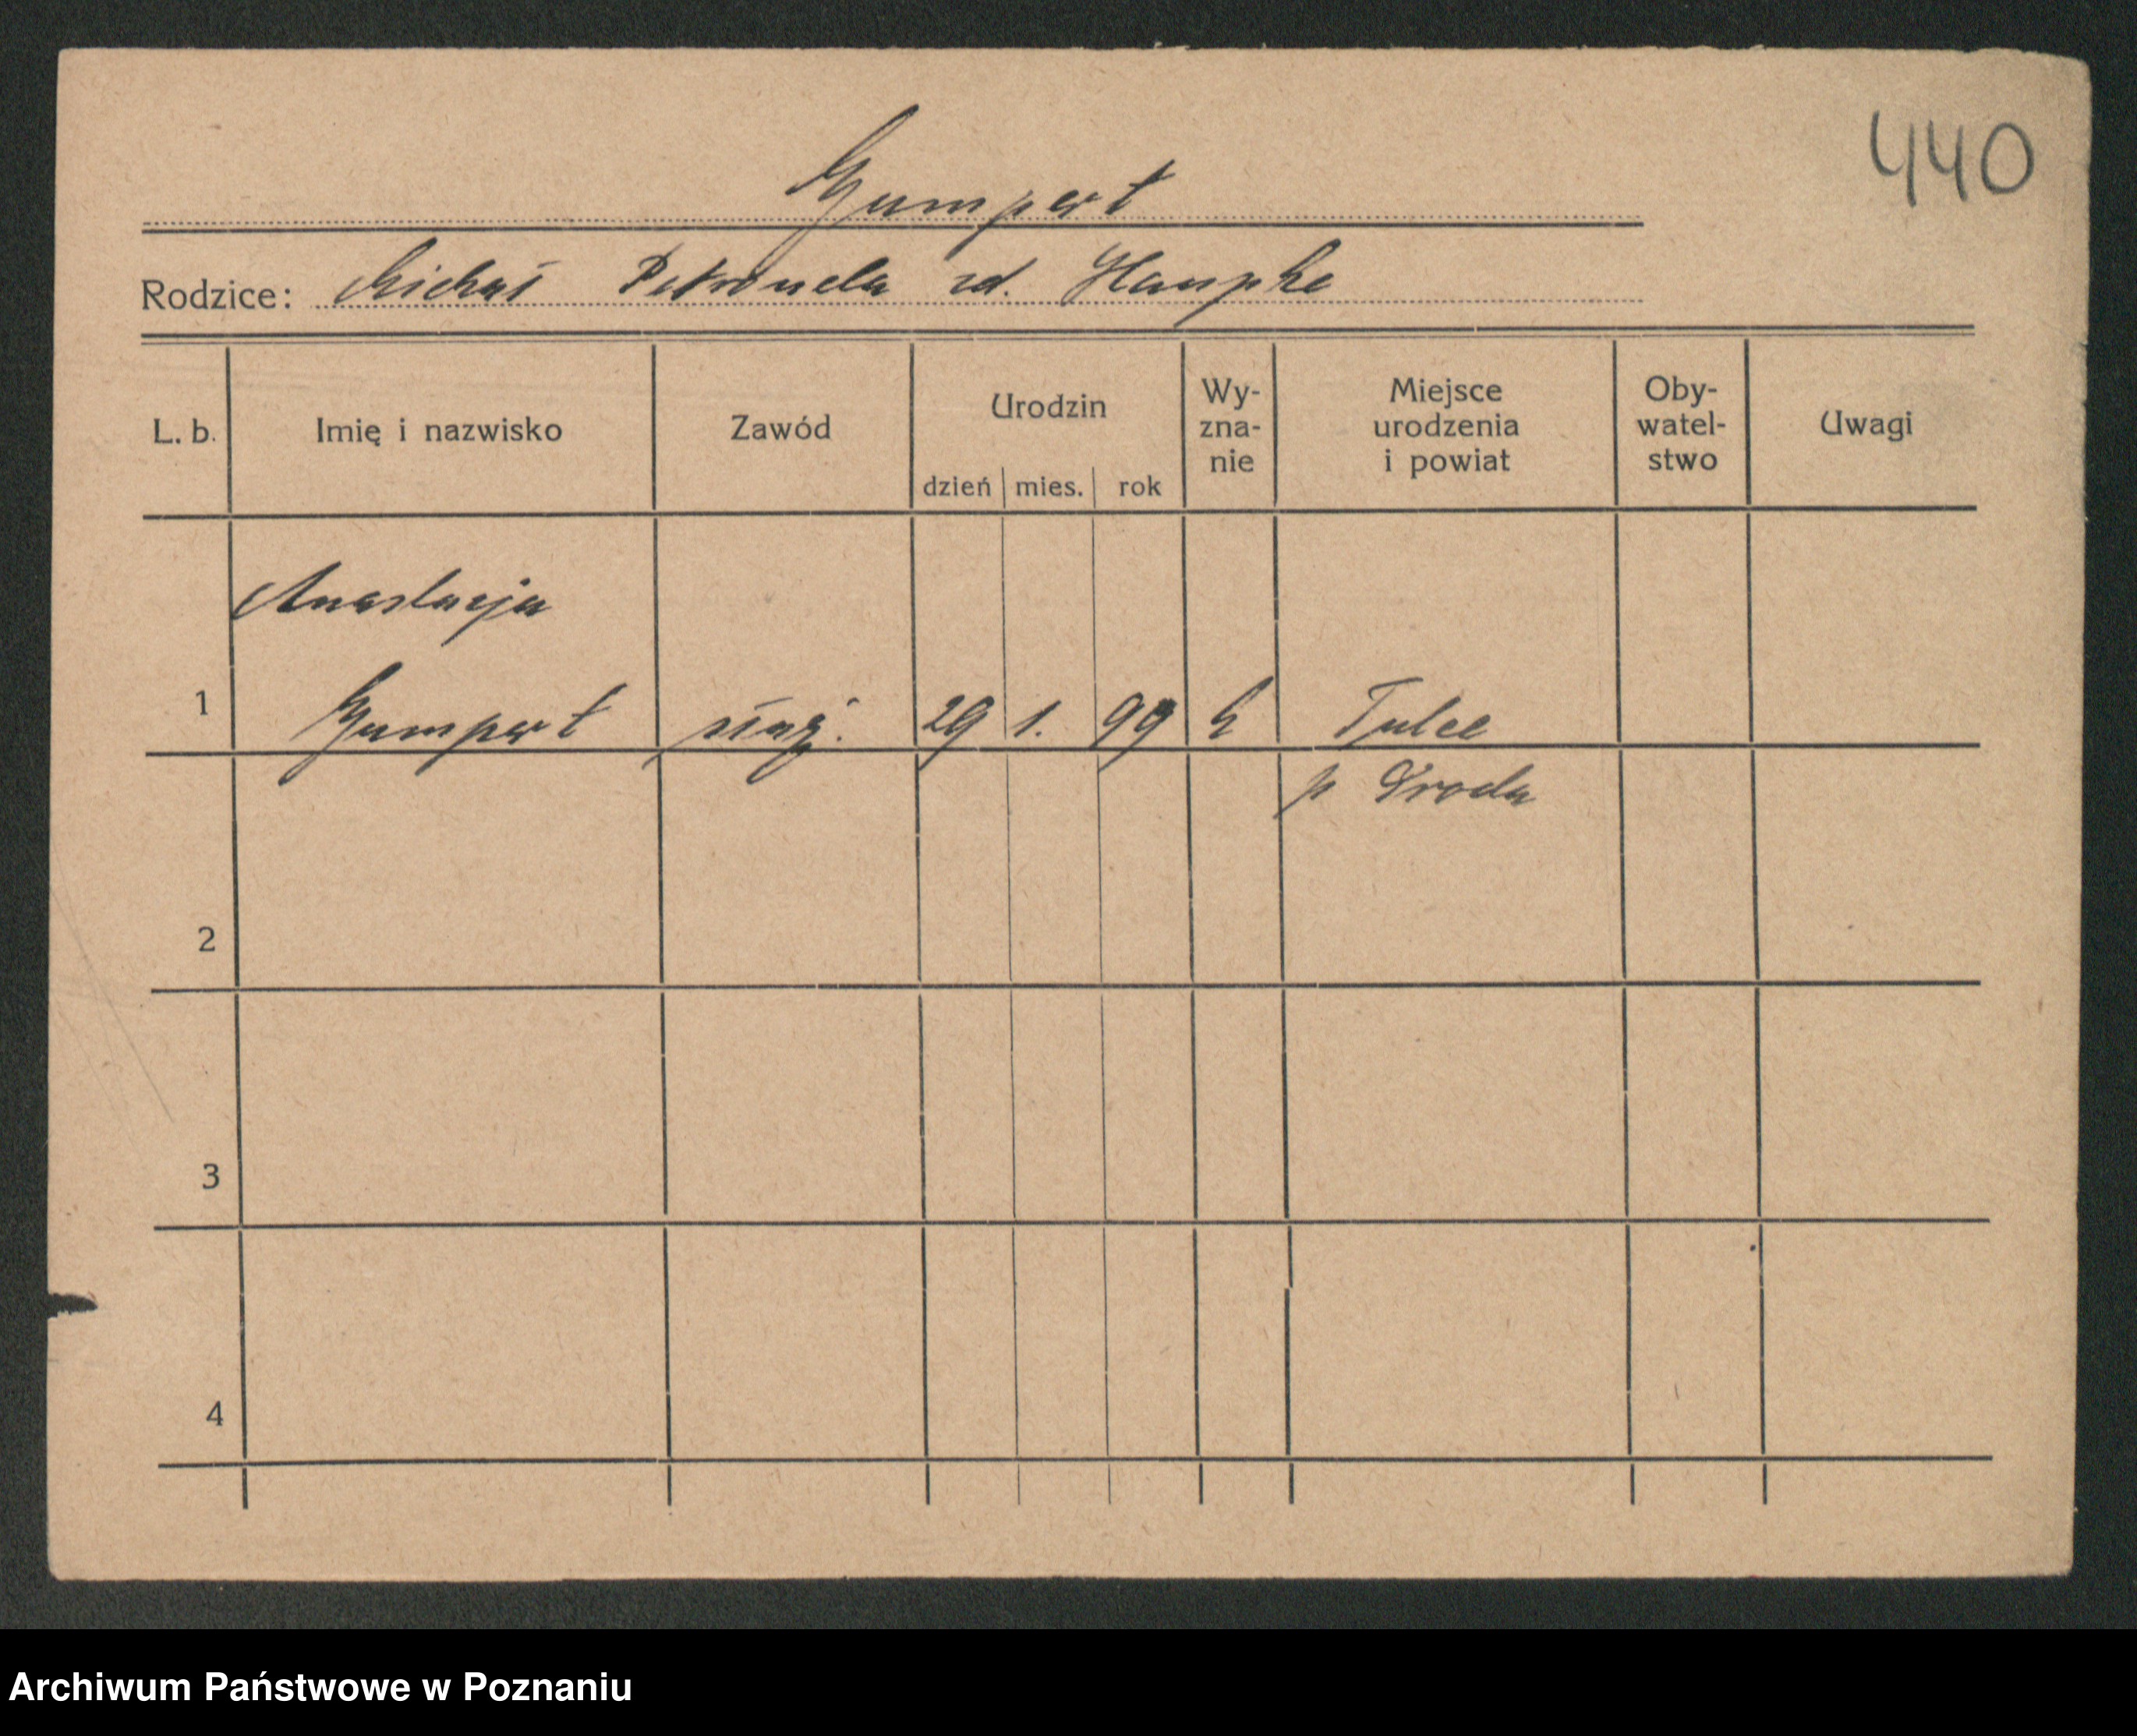 440
Gumpert
Rodzice: Michał Petronela zd. Haupke
L. b. Imię i nazwisko Zawód Urodzin dzień mies. rok Wy- zna- nie Miejsce urodzenia i powiat Oby- watel- stwo Uwagi
Anastazja
1 Gumpert służ. 29 1. 99 k Tulce
p Środa
2
3
4
Archiwum Państwowe w Poznaniu